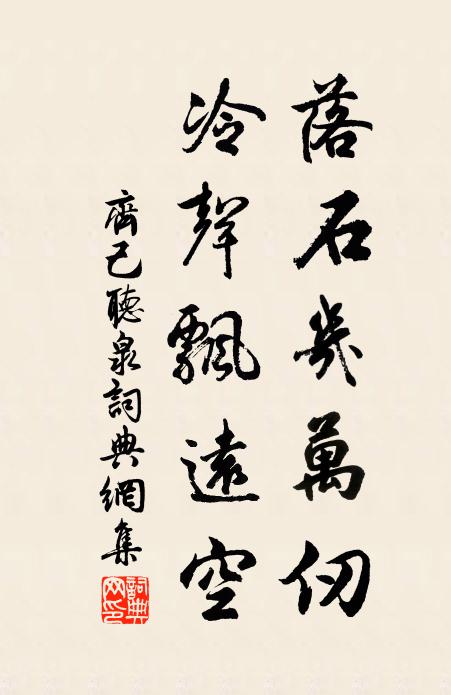 落石幾萬仞
冷聲飄遠空
齊己聽泉詞典網集
詞典網印